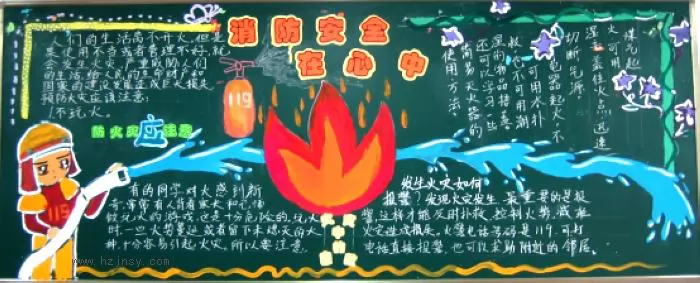 消防安全
在心中
们的生活离不开火,但是
如果使用不当或者管理不好,就
会发生火灾,严重威胁人们
的生活,给人民的生命财产和
国家的建设发展造成巨大损失,
预防火灾应该注意:
1不玩火。
119
防火灾应注意
有的同学对火感到新
奇,常常背着家大和
做玩火的游戏,这是十分危险的,玩火
时,一旦火势蔓延或者留下未熄灭的火
种,十分容易引起火灾。所以要注意。
煤气起
火可用
湿盖住火点,迅速
切断气源。
电器起火,不
可用水扑
救,也不可用潮
湿的物品捂盖。
还可以学习些
简易灭火器的
使用方法。
发生火灾如何
报警?发现火灾发生,最重要的是报
警,这样才能及时扑救,控制火势,减轻
火灾造成损失。火警电话号码是119,可打
电话直接报警,也可以求助附近的邻居。
119
www.hzjnsy.com